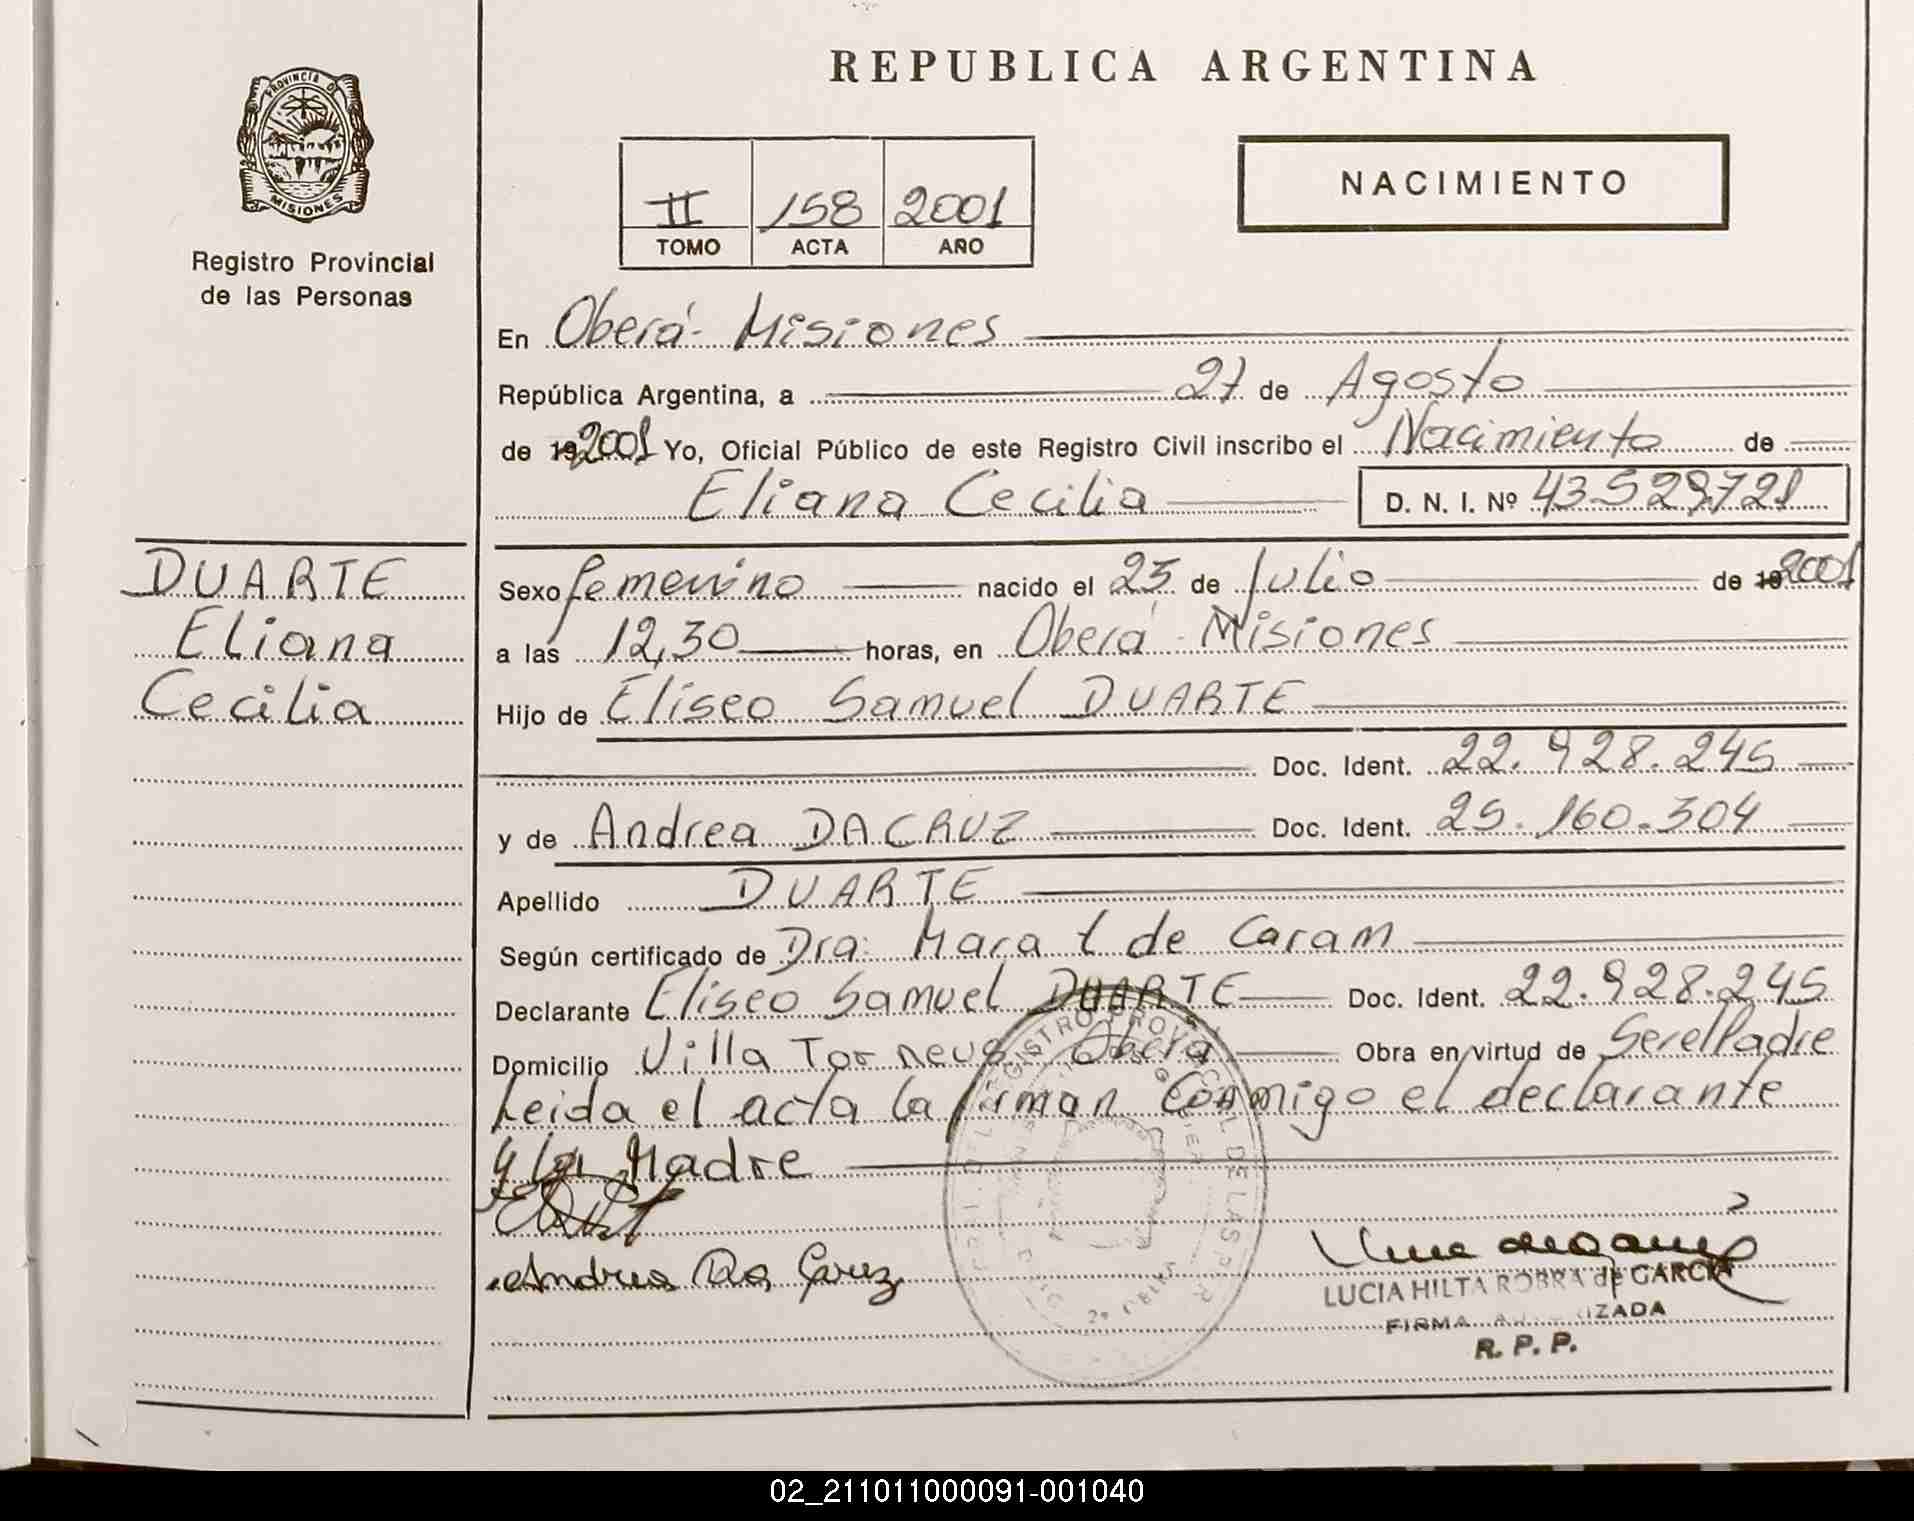 REPUBLICA ARGENTINA
PROVINCIA DE
MISIONES
Registro Provincial
de las Personas
II 158 2001
TOMO ACTA AÑO
NACIMIENTO
En Oberá - Misiones
República Argentina, a 27 de Agosto
de 19 2001 Yo, Oficial Público de este Registro Civil inscribo el Nacimiento de
Eliana Cecilia D. N. I. Nº 43.529.721
DUARTE
Eliana
Cecilia
Sexo femenino nacido el 25 de Julio de 19 2001
a las 12,30 horas, en Oberá - Misiones
Hijo de Eliseo Samuel DUARTE
Doc. Ident. 22.928.245
y de Andrea DACRUZ Doc. Ident. 25.160.304
Apellido DUARTE
Según certificado de Dra: Mara t de Caram
Declarante Eliseo Samuel DUARTE Doc. Ident. 22.928.245
Domicilio Villa Torneus Oberá Obra en virtud de Ser el Padre
Leida el acta la firman Conmigo el declarante
y la Madre
Andrea Da Cruz
REGISTRO PROVINCIAL DE LAS PER
LUCIA HILTA ROBRA de GARCIA
FIRMA AUTORIZADA
R. P. P.
02_211011000091-001040